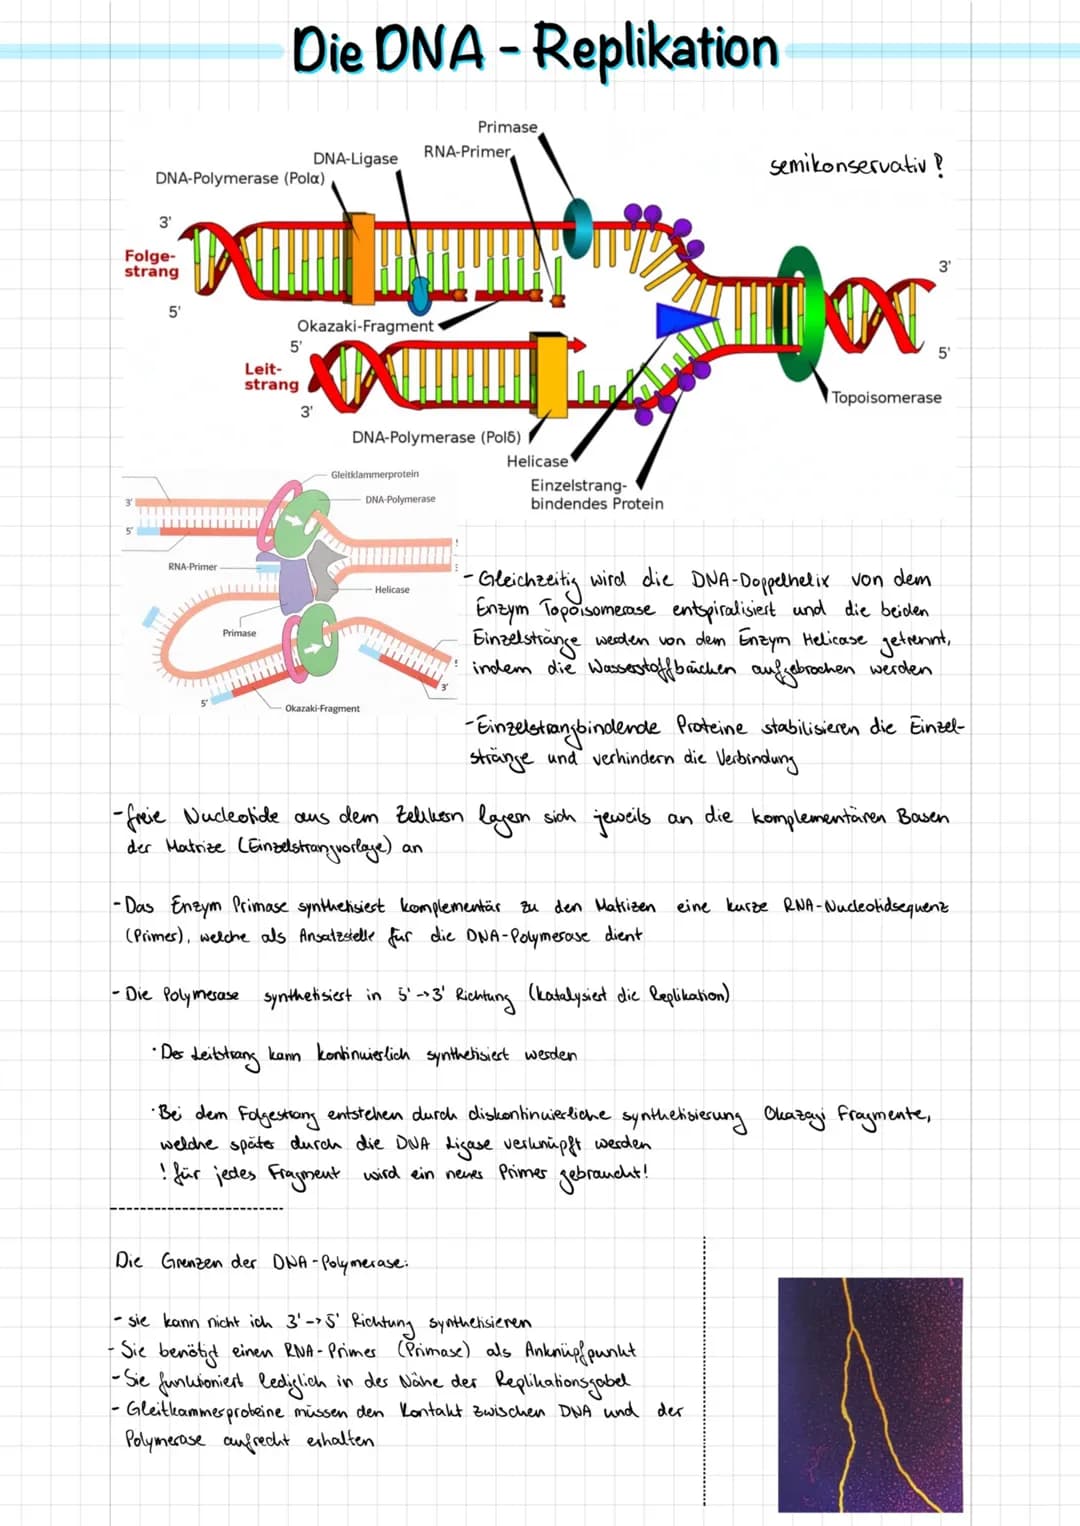 Die DNA - Replikation
Primase
DNA-Ligase
RNA-Primer
semikonservativ?
DNA-Polymerase (Polα)
3'
Folge-
strang
5'
3'
5'
Okazaki-Fragment
5'
Leit-
strang
3'
Topoisomerase
DNA-Polymerase (Polδ)
Helicase
Einzelstrang-
bindendes Protein
Gleitklammerprotein
DNA-Polymerase
3'
5'
RNA-Primer
Helicase
Primase
3'
5'
Okazaki-Fragment
- Gleichzeitig wird die DNA-Doppelhelix von dem
Enzym Topoisomerase entspiralisiert und die beiden
Einzelstränge werden von dem Enzym Helicase getrennt,
indem die Wasserstoffbrücken aufgebrochen werden
- Einzelstrangbindende Proteine stabilisieren die Einzel-
stränge und verhindern die Verbindung
- freie Nucleotide aus dem Zellkern lagern sich jeweils an die komplementären Basen
der Matrize (Einzelstrangvorlage) an
- Das Enzym Primase synthetisiert komplementär zu den Matrizen eine kurze RNA-Nucleotidsequenz
(Primer), welche als Ansatzstelle für die DNA-Polymerase dient
- Die Polymerase synthetisiert in 5'->3' Richtung (katalysiert die Replikation)
· Der Leitstrang kann kontinuierlich synthetisiert werden
· Bei dem Folgestrang entstehen durch diskontinuierliche synthetisierung Okazagi Fragmente,
welche später durch die DNA Ligase verknüpft werden
! für jedes Fragment wird ein neues Primer gebraucht!
Die Grenzen der DNA-Polymerase:
- sie kann nicht ich 3'->5' Richtung synthetisieren
- Sie benötigt einen RNA-Primer (Primase) als Anknüpfpunkt
- Sie funktioniert lediglich in der Nähe der Replikationsgabel
- Gleitkammerproteine müssen den Kontakt zwischen DNA und der
Polymerase aufrecht erhalten